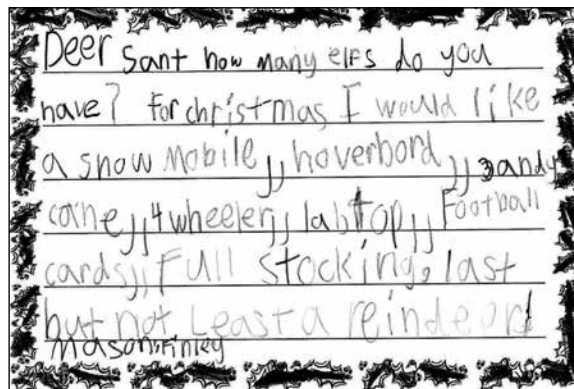 Deer Sant how many elfs do you
have? For christmas I would like
a snow mobile,, hoverbord,, 3andy
cane,, 4 wheeler,, labtop,, Football
cards,, Full stocking, last
but not Least a reindeer!
Mason Finley